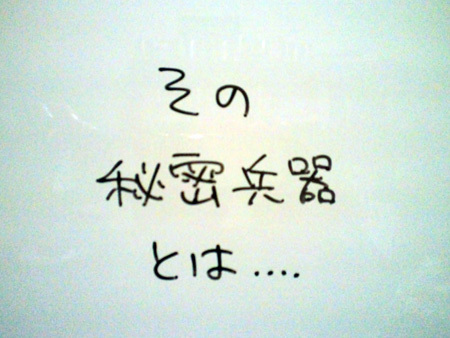 その
秘密兵器
とは....